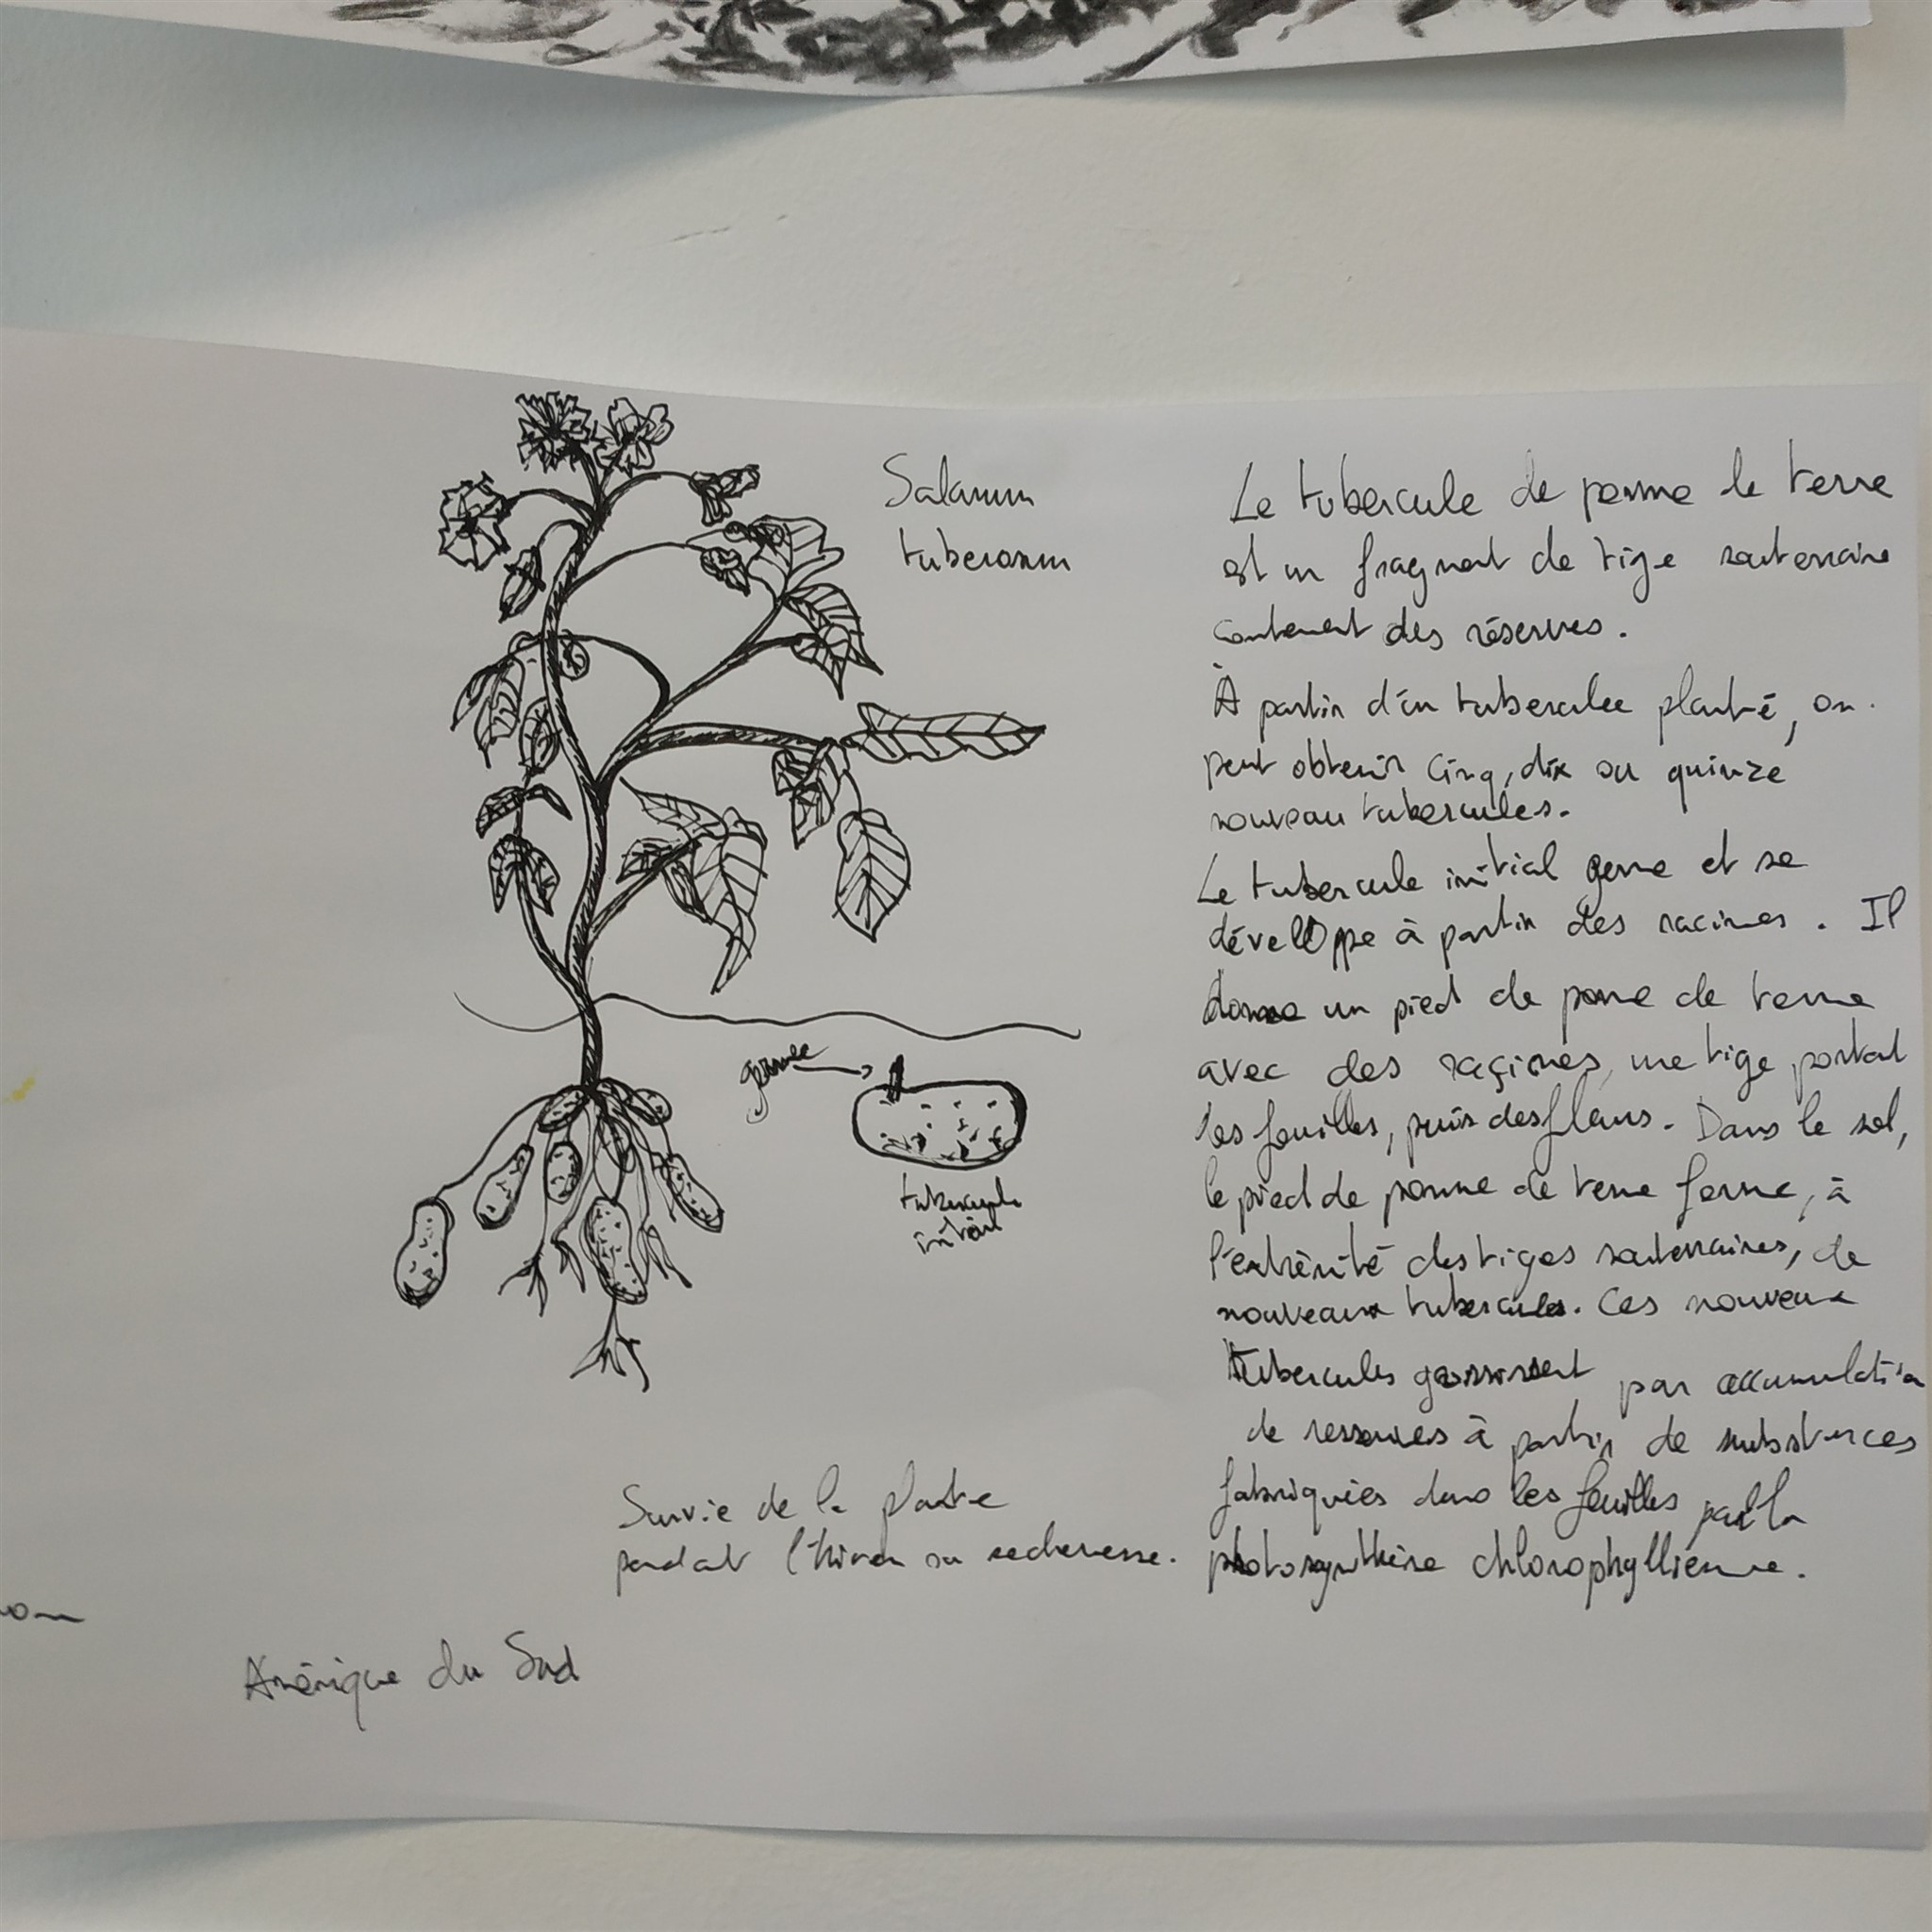 Solanum
tuberosum
Le tubercule de pomme de terre
est un fragment de tige souterraine
contenant des réserves.
À partir d'un tubercule planté, on
peut obtenir cinq, dix ou quinze
nouveau tubercules.
Le tubercule initial germe et se
développe à partir des racines. Il
donne un pied de pomme de terre
avec des racines, une tige portant
les feuilles, puis des fleurs. Dans le sol,
le pied de pomme de terre forme, à
l'extrémité des tiges souterraines, de
nouveaux tubercules. Ces nouveaux
tubercules grossissent par accumulation
de ressources à partir de substances
fabriquées dans les feuilles par la
photosynthèse chlorophyllienne.
germe
tubercule
initial
Survie de la plante
pendant l'hiver ou secheresse.
Amérique du Sud